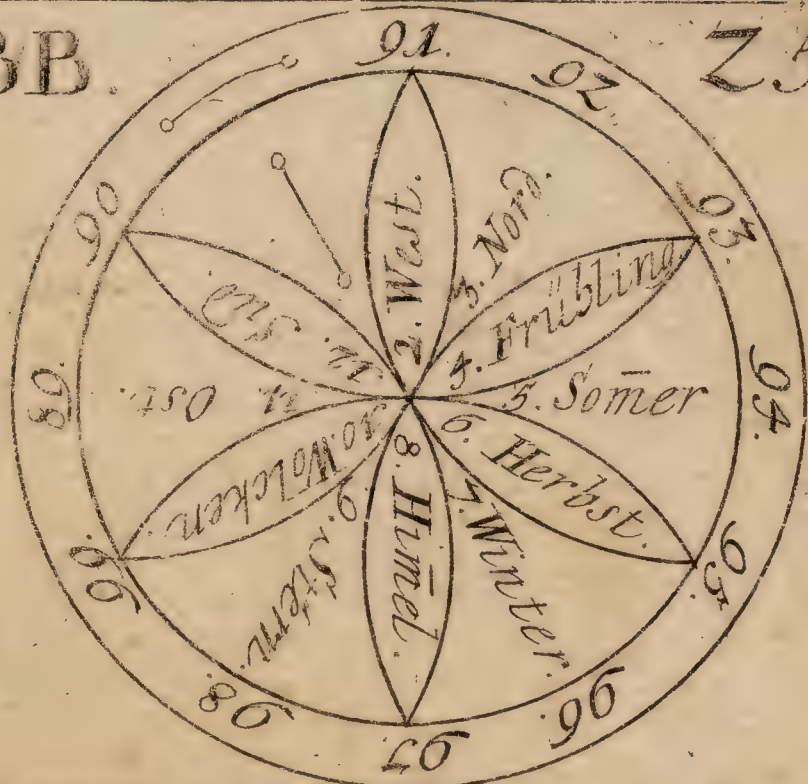 BB.
91.
92.
93.
94.
95.
96.
97.
98.
99.
89.
90
2. West.
3. Nord.
4. Frühling
5. Som̄er
6. Herbst.
7. Winter.
8. Him̄el.
9. Stern.
10 Wolcken.
11. Ost.
12. Sud